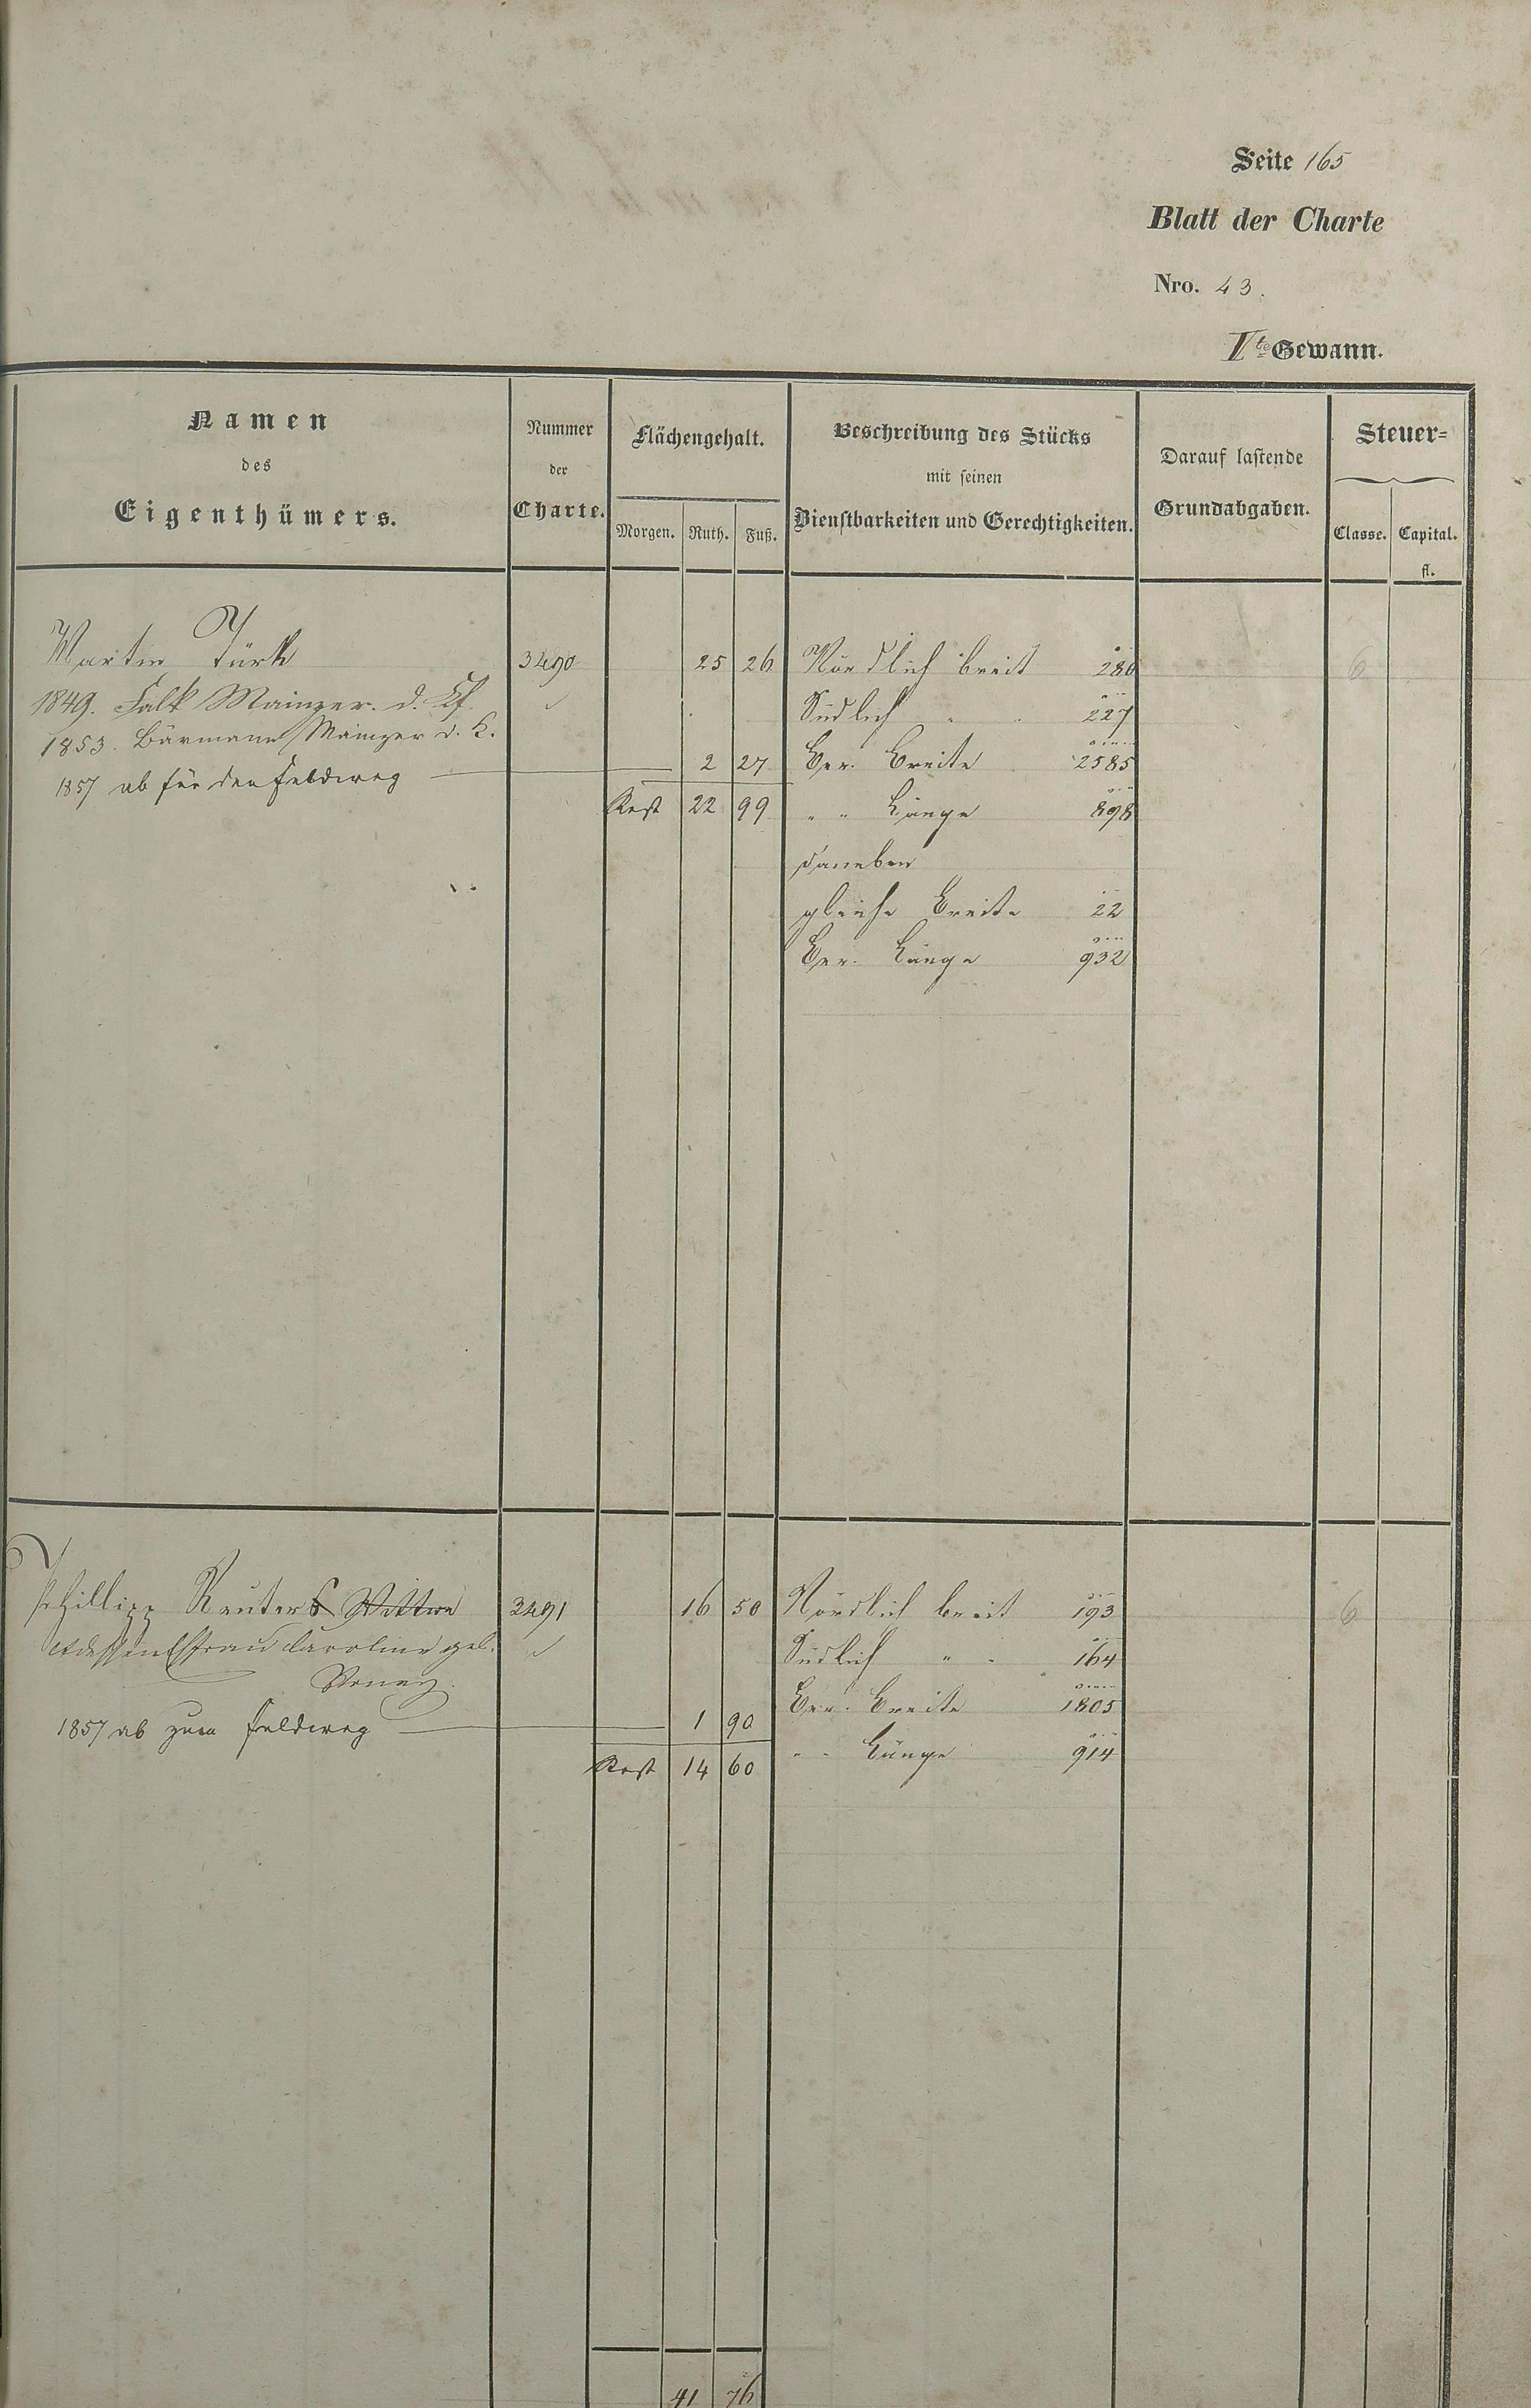 Seite 165
Blatt der Charte
Nro. 43.
Vte Gewann.
Namen
des
Eigenthümers.
Nummer
der
Charte.
Flächengehalt.
Morgen. Ruth. Fuß.
Beschreibung des Stücks
mit seinen
Dienstbarkeiten und Gerechtigkeiten.
Darauf lastende
Grundabgaben.
Steuer=
Classe. Capital.
fl.
Martin Türk 3490 25 26 Nördlich breit 286 6
1849. Falk Mainzer. d. Kf. Südlich " " 227
1853. Bärmann Mainzer d. K.
1857 ab für den Feldweg 2 27 Ger. Breite 2585
Rest 22 99 " " Länge 898
daneben
gleiche Breite 22
Ger. Länge 932
Phillipp Reuters Wittwe 3491 16 50 Nördlich breit 193 6
dessen Ehfrau Caroline geb. Südlich " " 164
Ger. Breite 1805
1857 ab zum Feldweg 1 90
Rest 14 60 " " Länge 914
41 76